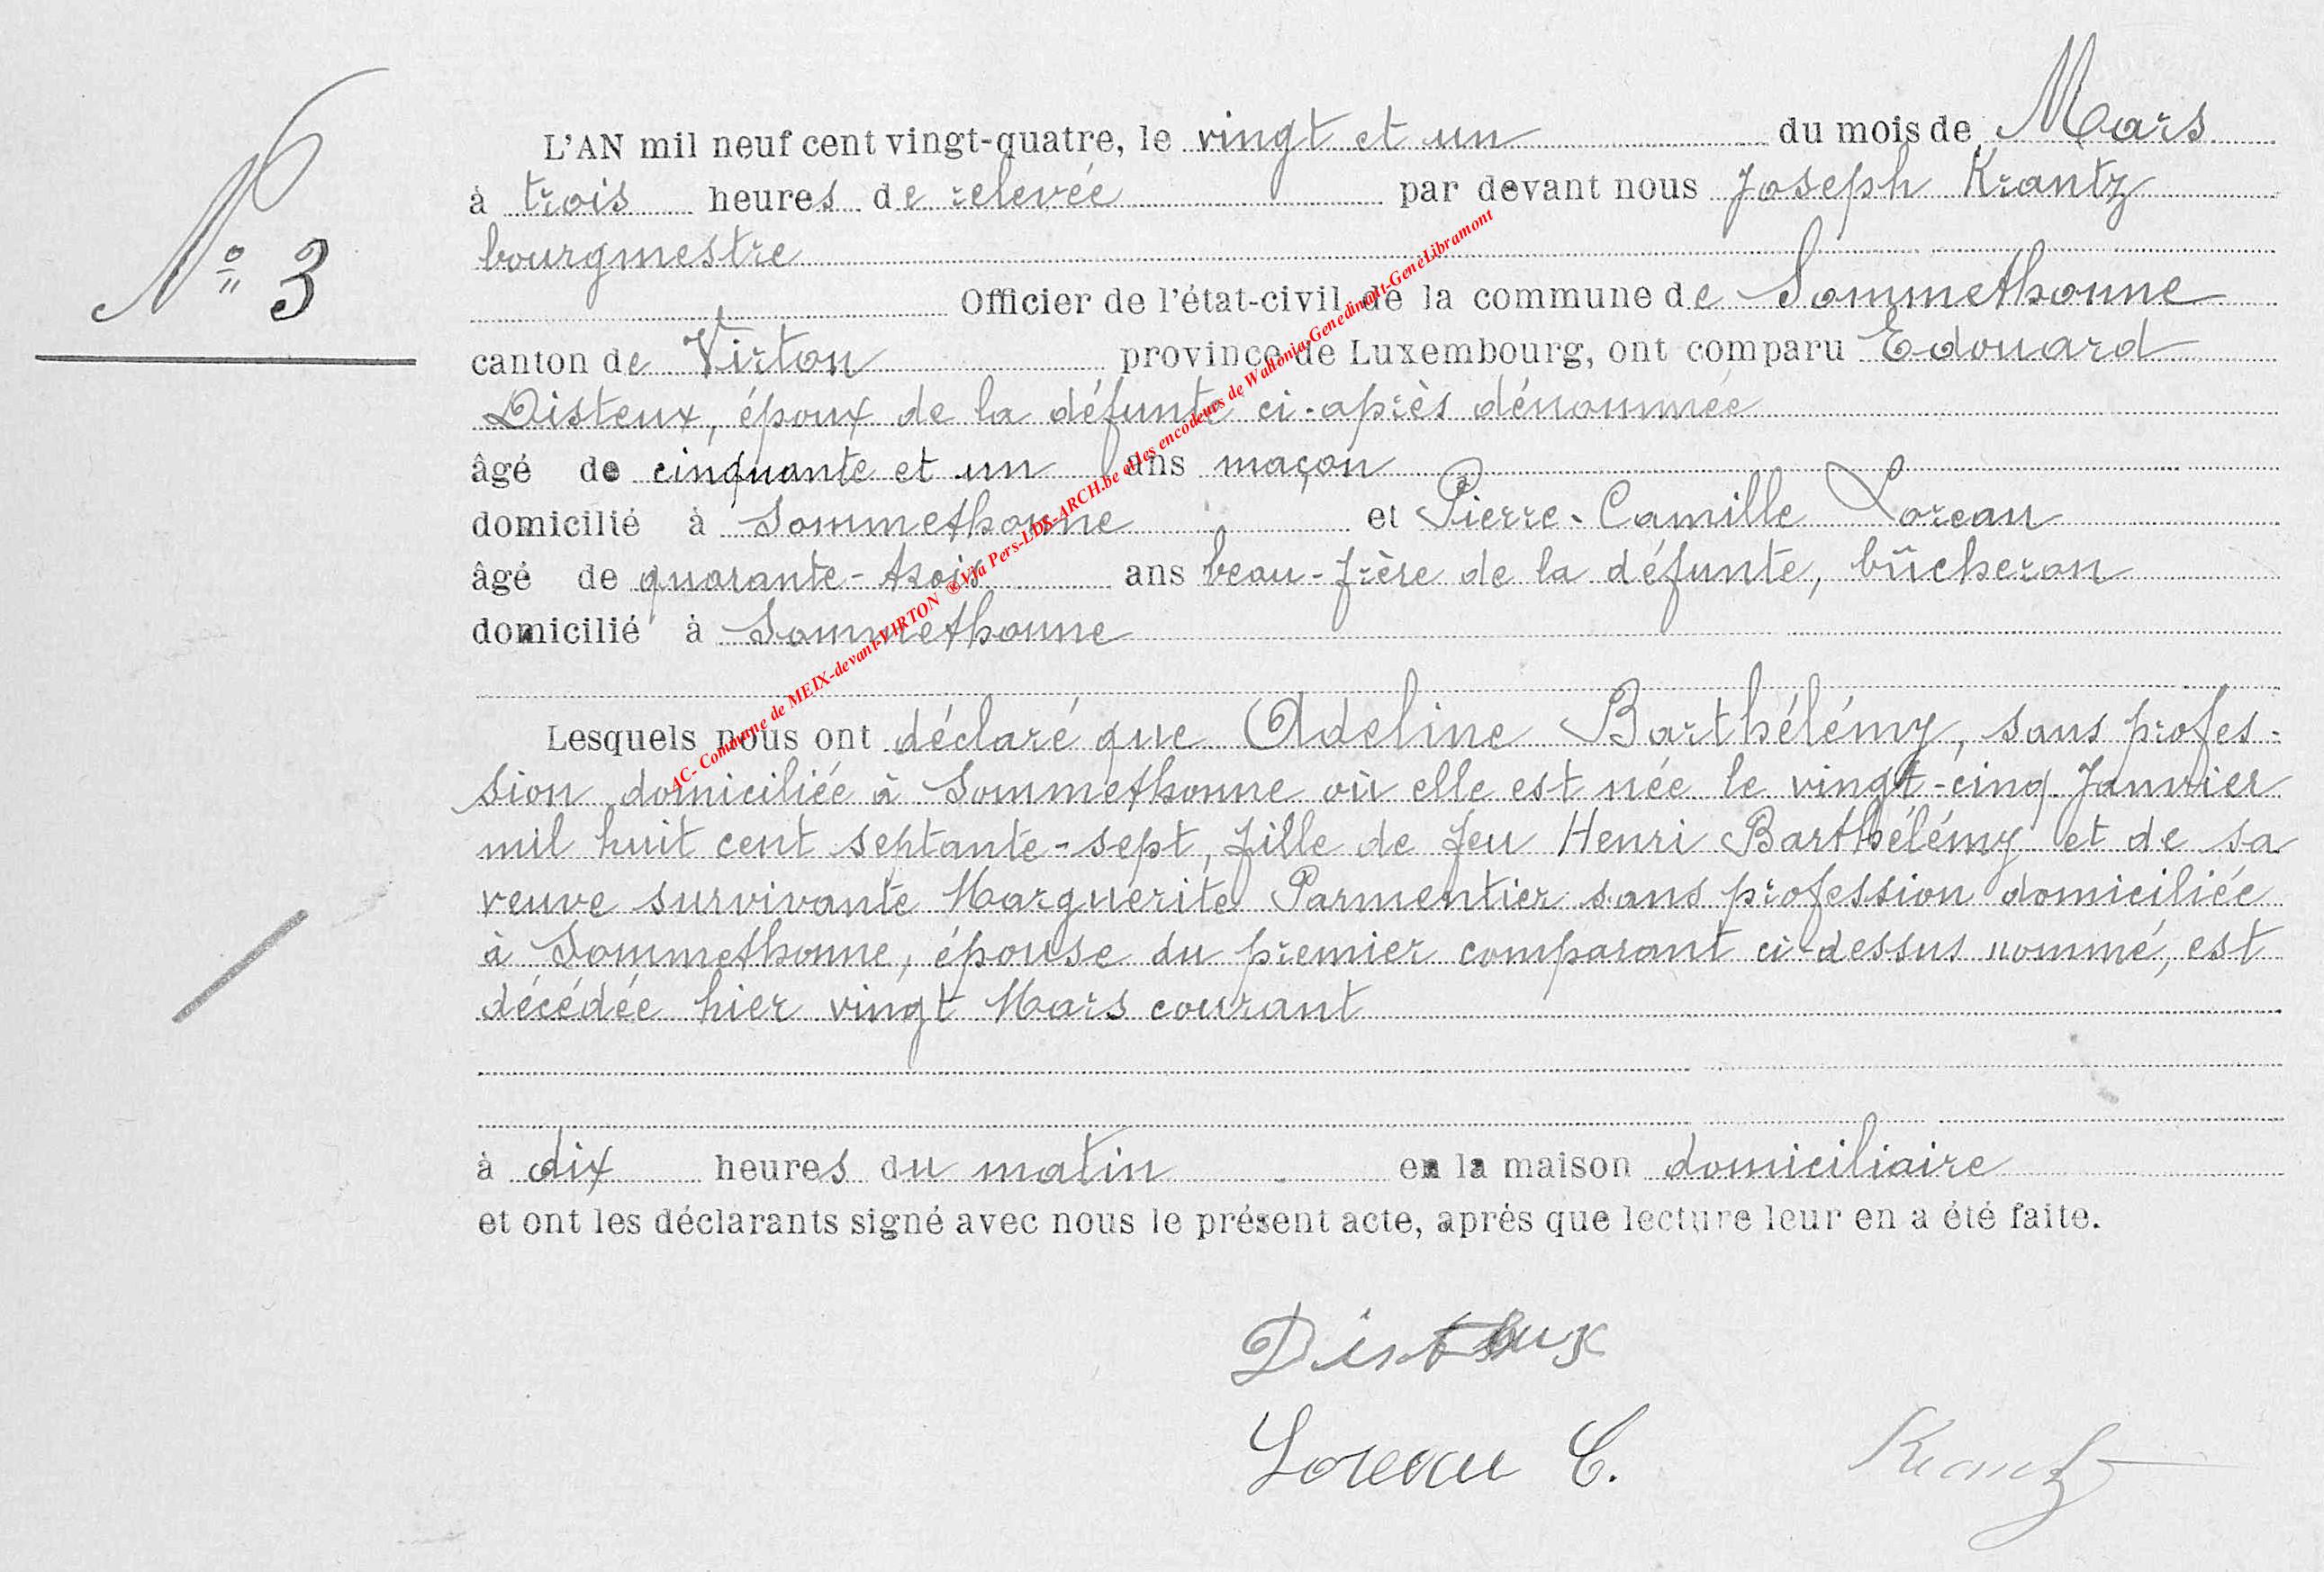 N° 3
L'AN mil neuf cent vingt-quatre, le vingt et un du mois de Mars
à trois heures de relevée par devant nous Joseph Krantz
bourgmestre
Officier de l'état-civil de la commune de Sommethonne
canton de Virton province de Luxembourg, ont comparu Edouard
Disteux, époux de la défunte ci-après dénommée
âgé de cinquante et un ans maçon
domicilié à Sommethonne et Pierre-Camille Loreau
âgé de quarante-trois ans beau-frère de la défunte, bûcheron
domicilié à Sommethonne
Lesquels nous ont déclaré que Adeline Barthélémy, sans profes-
sion domiciliée à Sommethonne où elle est née le vingt-cinq Janvier
mil huit cent septante-sept, fille de feu Henri Barthélémy et de sa
veuve survivante Marguerite Parmentier sans profession domiciliée
à Sommethonne, épouse du premier comparant ci-dessus nommé, est
décédée hier vingt Mars courant
à dix heures du matin en la maison domiciliaire
et ont les déclarants signé avec nous le présent acte, après que lecture leur en a été faite.
Disteux
Loreau C. Krantz
AC- Commune de MEIX-devant-VIRTON ® via Pers-LDS-ARCH.be et les encodeurs de Wallonia-Genedinant-GeneLibramont